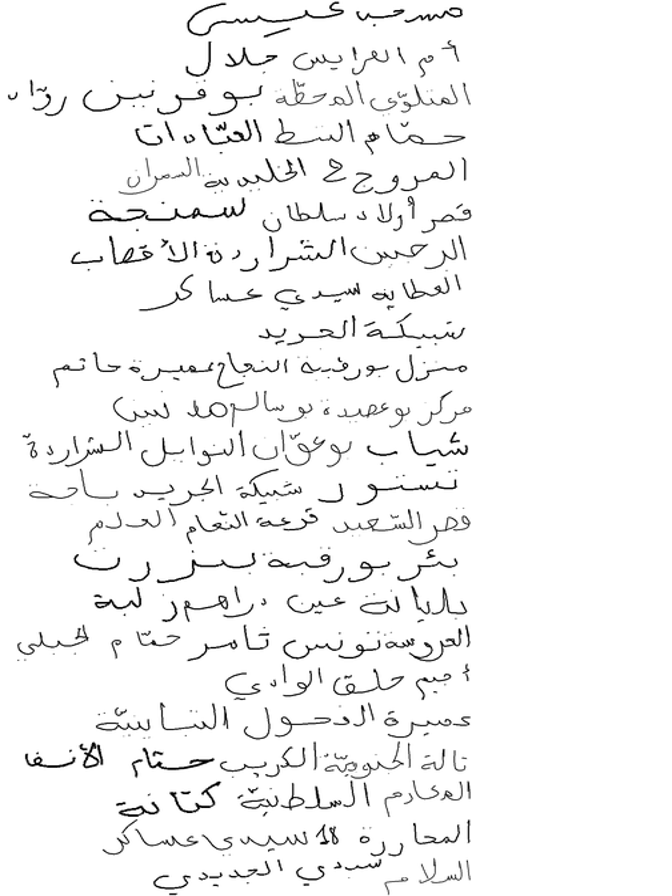 مسرحب عيسى
أم العرايس جلال
المتلوّي المحطّة بوقرنين روّاد
حمّام الشط العبّادات
المروج 3 الخليدية السمران
قصر أولاد سلطان سمنجة
الرحمين الشراردة الأقصاب
العطاية سيدي عساكر
شبيكة الجريد
منزل بورقيبة النجاح عميرة حاتم
مركز بوعصيدة بوسالم مدنين
شباب بوعوّان النوايل الشراردة
تستور شبيكة الجريد باجة
قصر السّعيد قرعة النعام العلام
بئر بورقبة بنزرت
بليانة عين دراهم زلبة
العروسة تونس تامر حمّام الجبلي
أجيم حلق الوادي
عميرة الفحول التباينيّة
تالة الجنوبيّة الكريب حمّام الأنف
المحارم السلطنيّة كتانة
المحاررة 18 سيدي عساكر
السلام سيدي الجديدي